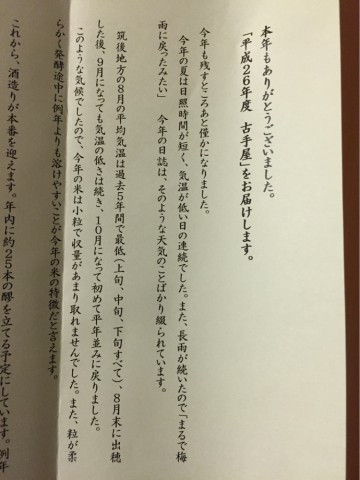 本年もありがとうございました。
「平成26年度　古手屋」をお届けします。
今年も残すところあと僅かになりました。
今年の夏は日照時間が短く、気温が低い日の連続でした。また、長雨が続いたので「まるで梅
雨に戻ったみたい」　今年の日誌は、そのような天気のことばかり綴られています。
筑後地方の8月の平均気温は過去5年間で最低(上旬、中旬、下旬すべて)、8月末に出穂
した後、9月になっても気温の低さは続き、10月になって初めて平年並みに戻りました。
このような気候でしたので、今年の米は小粒で収量があまり取れませんでした。また、粒が柔
らかく発酵途中に例年よりも溶けやすいことが今年の米の特徴だと言えます。
これから、酒造りが本番を迎えます。年内に約25本の醪を立てる予定にしています。例年